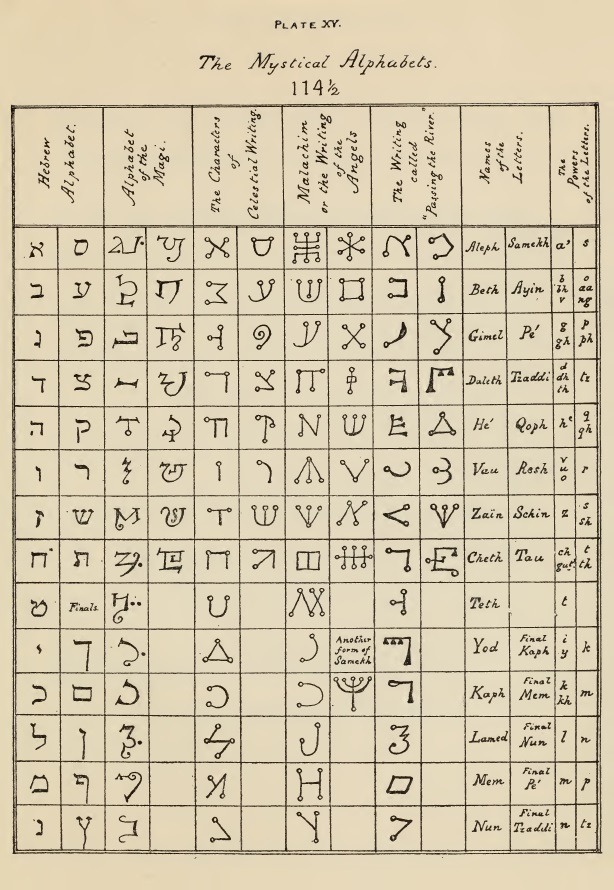 PLATE XV.
The Mystical Alphabets.
114½
Hebrew Alphabet.
Alphabet of the Magi.
The Characters of Celestial Writing.
Malachim or the Writing of the Angels
The Writing called "Passing the River."
Names of the Letters.
The Powers of the Letters.
א ס Aleph Samekh a' s
ב ע Beth Ayin b bh v o aa ng
ג פ Gimel Pé g gh p ph
ד צ Daleth Tzaddi d dh th tz
ה ק Hé Qoph hᵉ q qh
ו ר Vau Resh v u o r
ז ש Zaïn Schin z s sh
ח ת Cheth Tau ch gut! t th
ט Finals. Teth t
י ך Another form of Samekh Yod Final Kaph i y k
כ ם Kaph Final Mem k kh m
ל ן Lamed Final Nun l n
מ ף Mem Final Pé m p
נ ץ Nun Final Tzaddi n tz